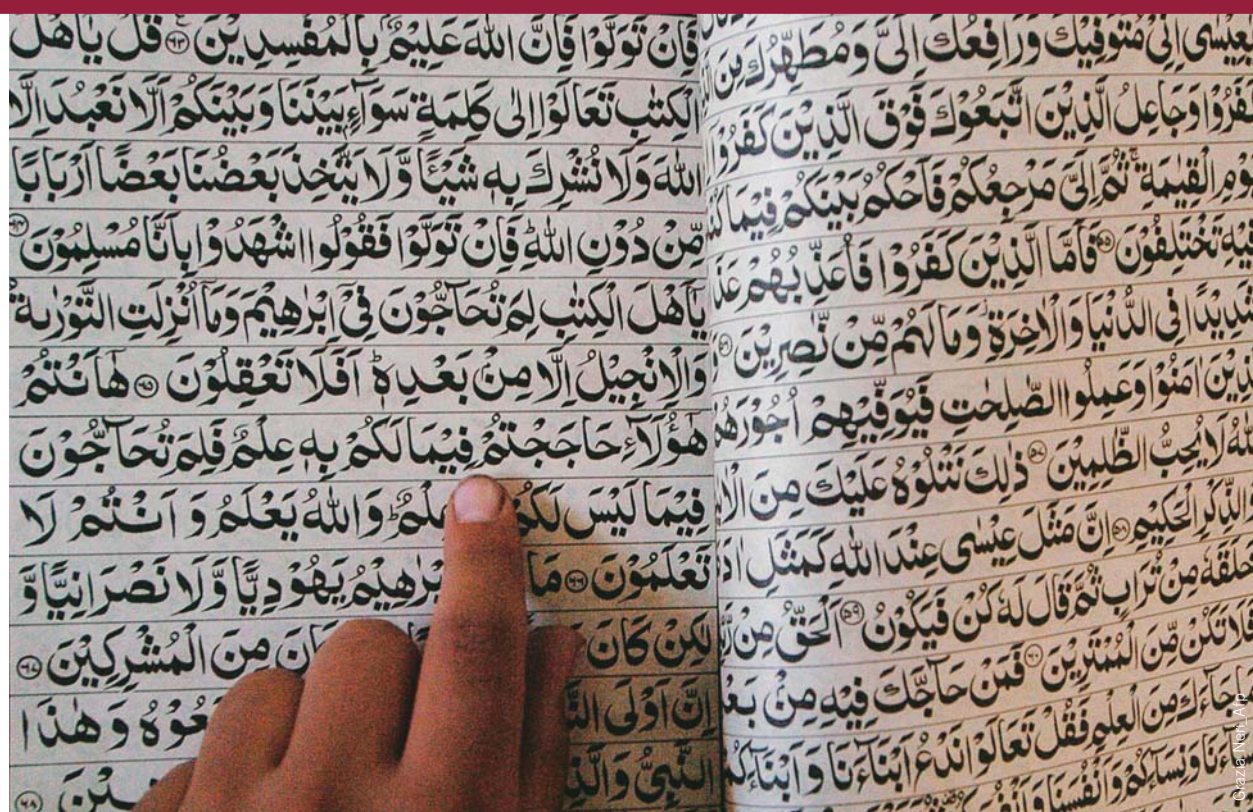 يٰعِيْسٰۤى اِنِّىْ مُتَوَفِّيْكَ وَرَافِعُكَ اِلَىَّ وَمُطَهِّرُكَ مِنَ
كَفَرُوْا وَجَاعِلُ الَّذِيْنَ اتَّبَعُوْكَ فَوْقَ الَّذِيْنَ كَفَرُوْۤا
يَوْمِ الْقِيٰمَةِ ۚ ثُمَّ اِلَىَّ مَرْجِعُكُمْ فَاَحْكُمُ بَيْنَكُمْ فِيْمَا
فِيْهِ تَخْتَلِفُوْنَ ﴿٥٥﴾ فَاَمَّا الَّذِيْنَ كَفَرُوْا فَاُعَذِّبُهُمْ
شَدِيْدًا فِى الدُّنْيَا وَالْاٰخِرَةِ ۫ وَمَا لَهُمْ مِّنْ نّٰصِرِيْنَ ﴿٥٦﴾
اٰمَنُوْا وَعَمِلُوا الصّٰلِحٰتِ فَيُوَفِّيْهِمْ اُجُوْرَهُمْ
لَا يُحِبُّ الظّٰلِمِيْنَ ﴿٥٧﴾ ذٰلِكَ نَتْلُوْهُ عَلَيْكَ مِنَ
الذِّكْرِ الْحَكِيْمِ ﴿٥٨﴾ اِنَّ مَثَلَ عِيْسٰى عِنْدَ اللّٰهِ كَمَثَلِ
خَلَقَهٗ مِنْ تُرَابٍ ثُمَّ قَالَ لَهٗ كُنْ فَيَكُوْنُ ﴿٥٩﴾ اَلْحَقُّ مِنْ
فَلَا تَكُنْ مِّنَ الْمُمْتَرِيْنَ ﴿٦٠﴾ فَمَنْ حَآجَّكَ فِيْهِ مِنْۢ
جَآءَكَ مِنَ الْعِلْمِ فَقُلْ تَعَالَوْا نَدْعُ اَبْنَآءَنَا وَاَبْنَآءَكُمْ
وَنِسَآءَكُمْ وَاَنْفُسَنَا
فَاِنْ تَوَلَّوْا فَاِنَّ اللّٰهَ عَلِيْمٌۢ بِالْمُفْسِدِيْنَ ﴿٦٣﴾ قُلْ يٰۤاَهْلَ
الْكِتٰبِ تَعَالَوْا اِلٰى كَلِمَةٍ سَوَآءٍۢ بَيْنَنَا وَبَيْنَكُمْ اَلَّا نَعْبُدَ اِلَّا
اللّٰهَ وَلَا نُشْرِكَ بِهٖ شَيْئًا وَّلَا يَتَّخِذَ بَعْضُنَا بَعْضًا اَرْبَابًا
مِّنْ دُوْنِ اللّٰهِ ؕ فَاِنْ تَوَلَّوْا فَقُوْلُوا اشْهَدُوْا بِاَنَّا مُسْلِمُوْنَ ﴿٦٤﴾
يٰۤاَهْلَ الْكِتٰبِ لِمَ تُحَآجُّوْنَ فِىْۤ اِبْرٰهِيْمَ وَمَاۤ اُنْزِلَتِ التَّوْرٰىةُ
وَالْاِنْجِيْلُ اِلَّا مِنْۢ بَعْدِهٖ ؕ اَفَلَا تَعْقِلُوْنَ ﴿٦٥﴾ هٰۤاَنْتُمْ
هٰۤؤُلَآءِ حَاجَجْتُمْ فِيْمَا لَكُمْ بِهٖ عِلْمٌ فَلِمَ تُحَآجُّوْنَ
فِيْمَا لَيْسَ لَكُمْ عِلْمٌ ؕ وَاللّٰهُ يَعْلَمُ وَاَنْتُمْ لَا
تَعْلَمُوْنَ ﴿٦٦﴾ مَا اِبْرٰهِيْمُ يَهُوْدِيًّا وَّلَا نَصْرَانِيًّا وَّ
لٰكِنْ كَانَ مِنَ الْمُشْرِكِيْنَ ﴿٦٧﴾
اِنَّ اَوْلَى وَهٰذَا
النَّبِىُّ ﴿٦٨﴾
Grazia Neri Afp